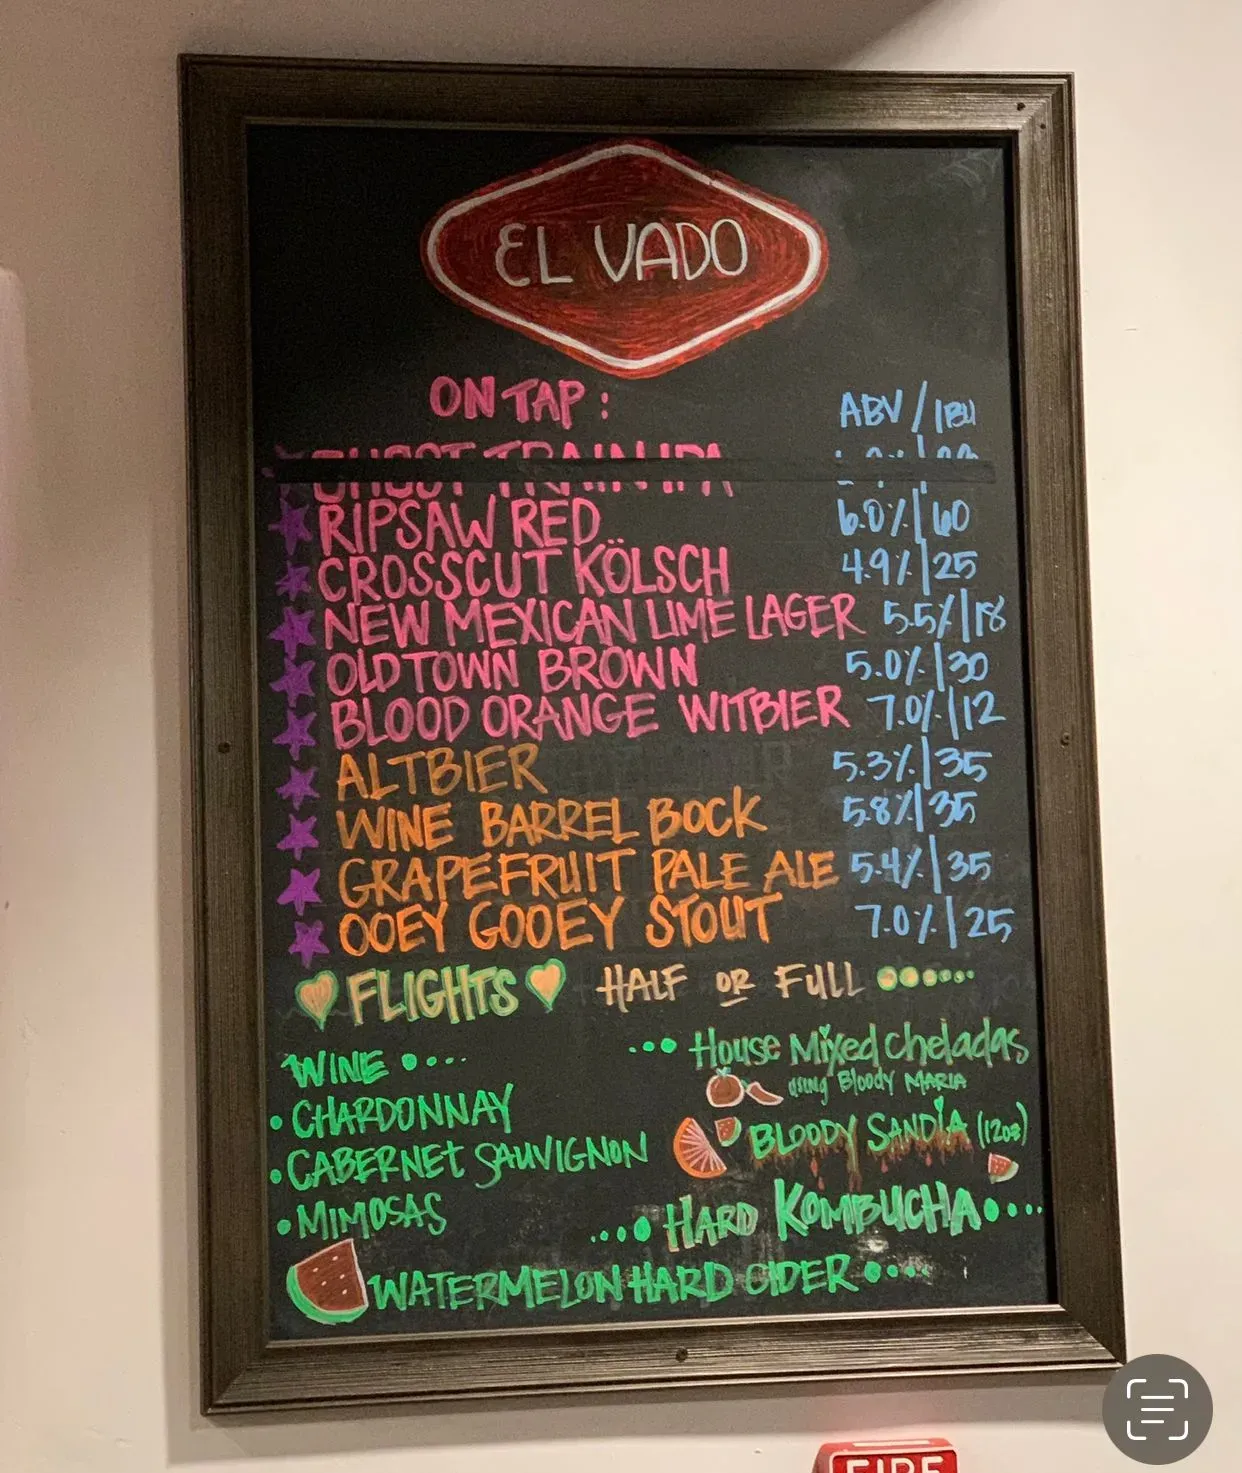 EL VADO
ON TAP: ABV / IBU
GHOST TRAIN IPA
RIPSAW RED 6.0% | 60
CROSSCUT KÖLSCH 4.9% | 25
NEW MEXICAN LIME LAGER 5.5% | 18
OLD TOWN BROWN 5.0% | 30
BLOOD ORANGE WITBIER 7.0% | 12
ALTBIER 5.3% | 35
WINE BARREL BOCK 5.8% | 35
GRAPEFRUIT PALE ALE 5.4% | 35
OOEY GOOEY STOUT 7.0% | 25
FLIGHTS HALF OR FULL
WINE
• CHARDONNAY
• CABERNET SAUVIGNON
• MIMOSAS
House Mixed Cheladas
using Bloody MARIA
BLOODY SANDIA (12oz)
HARD KOMBUCHA
WATERMELON HARD CIDER
FIRE